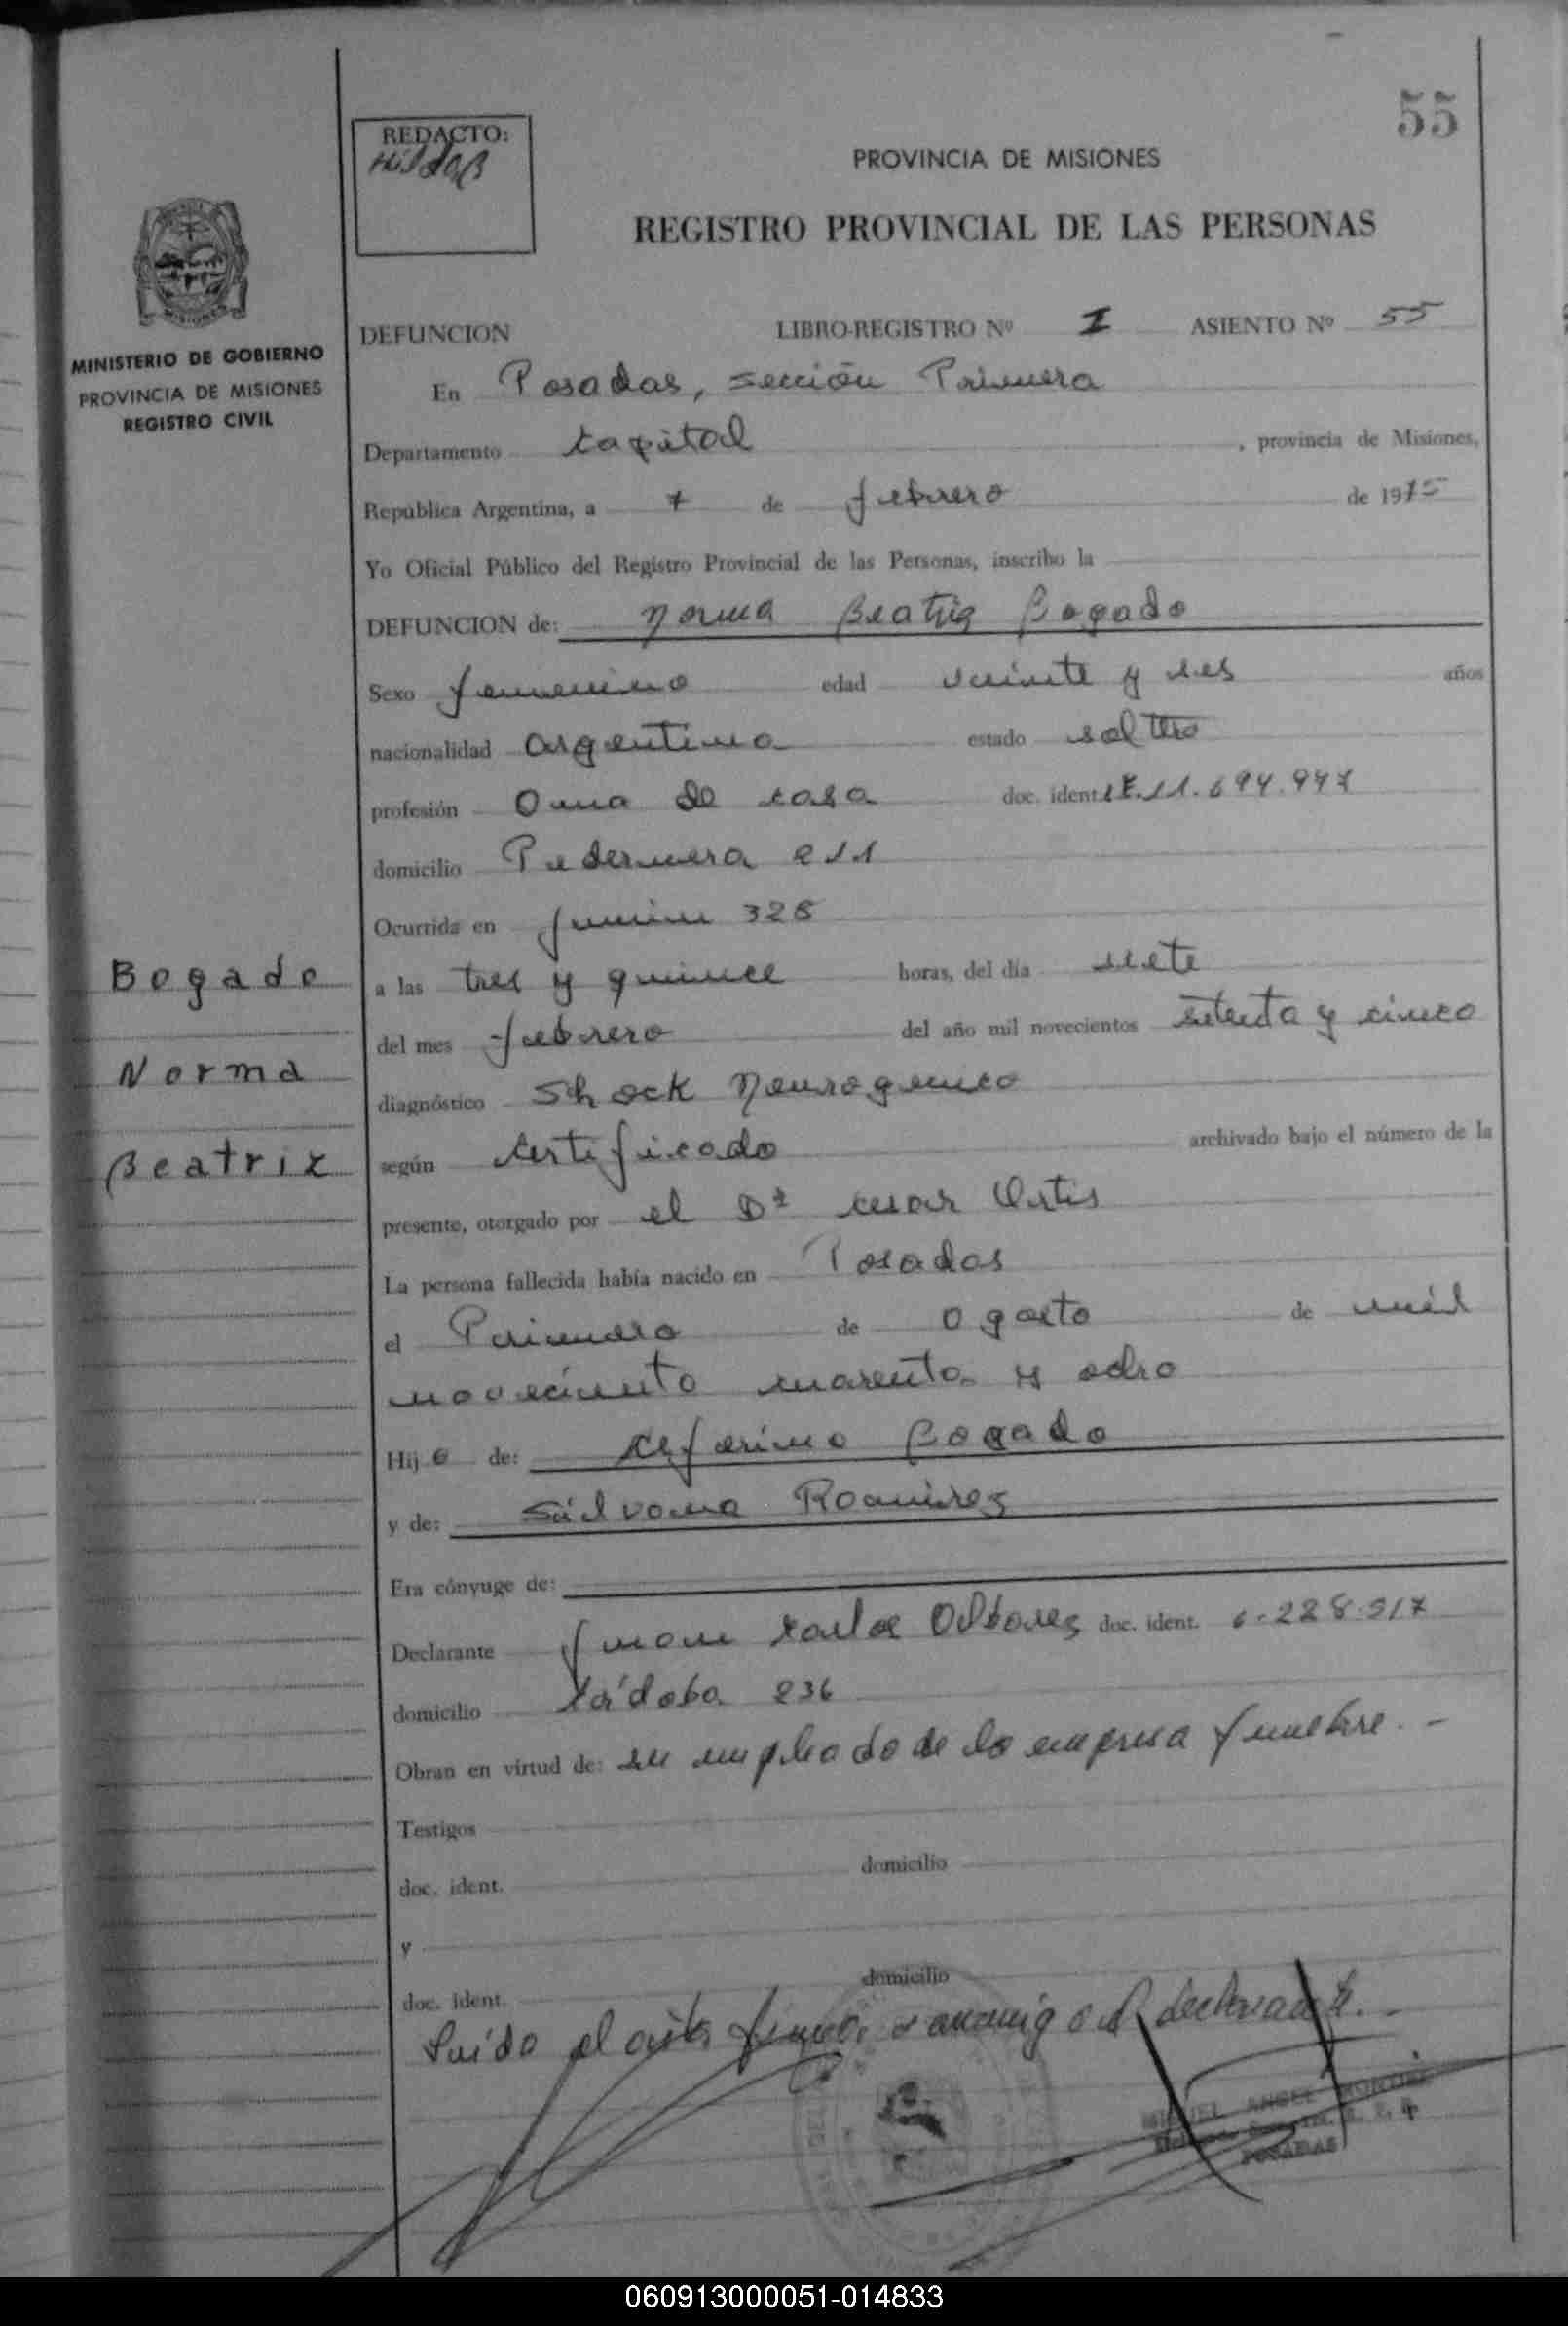 55
REDACTO:
PROVINCIA DE MISIONES
REGISTRO PROVINCIAL DE LAS PERSONAS
MINISTERIO DE GOBIERNO
PROVINCIA DE MISIONES
REGISTRO CIVIL
DEFUNCION LIBRO-REGISTRO Nº I ASIENTO Nº 55
En Posadas, sección Primera
Departamento Capital, provincia de Misiones,
República Argentina, a 7 de febrero de 1975
Yo Oficial Público del Registro Provincial de las Personas, inscribo la
DEFUNCION de: Norma Beatriz Bogado
Sexo femenino edad veinte y seis años
nacionalidad argentina estado soltera
profesión Ama de casa doc. ident.
domicilio Pedernera 211
Ocurrida en Junin 328
a las tres y quince horas, del día siete
del mes febrero del año mil novecientos setenta y cinco
diagnóstico Shock Neurogenico
según certificado archivado bajo el número de la
presente, otorgado por el Dr cesar Ortis
La persona fallecida había nacido en Posadas
el Primero de agosto de mil
noveciento cuarenta y ocho
Hija de: Ceferino Bogado
y de: Silvana Ramirez
Era cónyuge de:
Declarante Juan Carlos doc. ident. 6.228.517
domicilio Córdoba 236
Obran en virtud de: ser empleado de la empresa funebre.-
Testigos
doc. ident. domicilio
y
doc. ident. domicilio
Leído el acta firma conmigo el declarante.-
Bogado
Norma
Beatriz
MIGUEL ANGEL
POSADAS
060913000051-014833